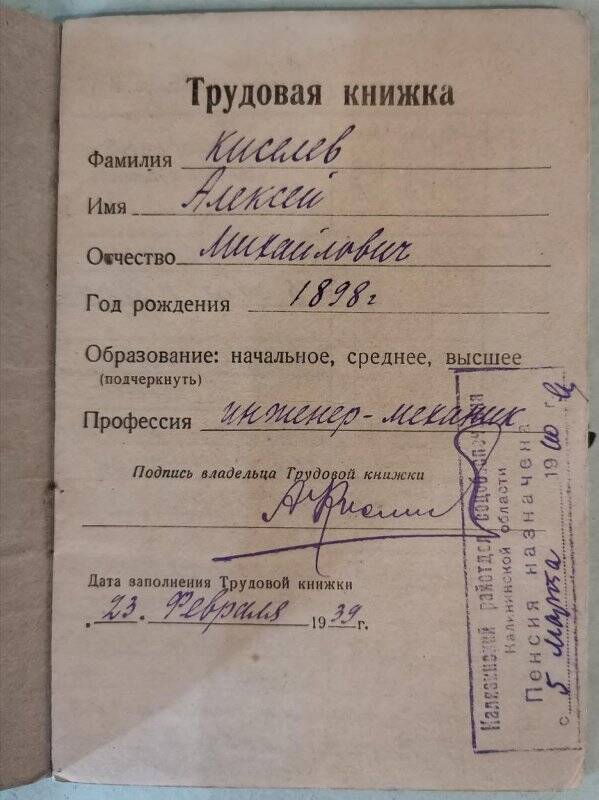 Трудовая книжка
Фамилия Киселев
Имя Алексей
Отчество Михайлович
Год рождения 1898 г
Образование: начальное, среднее, высшее
(подчеркнуть)
Профессия инженер-механик
Подпись владельца Трудовой книжки
Дата заполнения Трудовой книжки
23. Февраля 1939 г.
Калязинский райотдел
Калининской области
Пенсия назначена
с 5 марта 19 г.